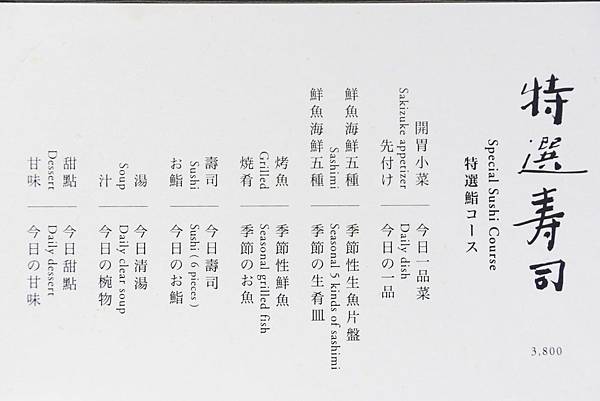 特選寿司
Special Sushi Course
特選鮨コース
3,800
開胃小菜 今日一品菜
Sakizuke appetizer Daily dish
先付け 今日の一品
鮮魚海鮮五種 季節性生魚片盤
Sashimi Seasonal 5 kinds of sashimi
鮮魚海鮮五種 季節の生肴皿
烤魚 季節性鮮魚
Grilled Seasonal grilled fish
焼肴 季節のお魚
壽司 今日壽司
Sushi Sushi ( 6 pieces )
お鮨 今日のお鮨
湯 今日清湯
Soup Daily clear soup
汁 今日の椀物
甜點 今日甜點
Dessert Daily dessert
甘味 今日の甘味